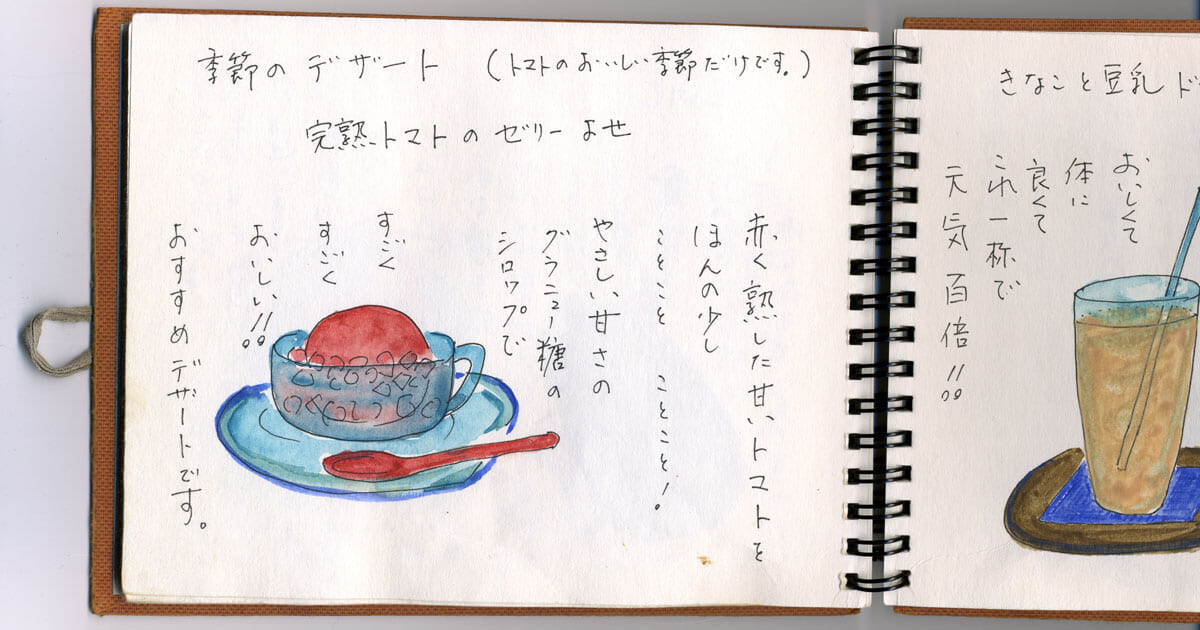 季節のデザート （トマトのおいしい季節だけです。）
完熟トマトのゼリーよせ
赤く熟した甘いトマトを
ほんの少し
ことこと ことこと！
やさしい甘さの
グラニュー糖の
シロップで
すごく
すごく
おいしい!!
おすすめデザートです。
きなこと豆乳ド
おいしくて
体に
良くて
これ一杯で
元気百倍!!